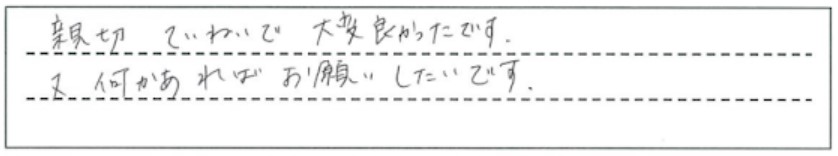 親切 ていねいで 大変良かったです.
又 何かあれば お願いしたいです.